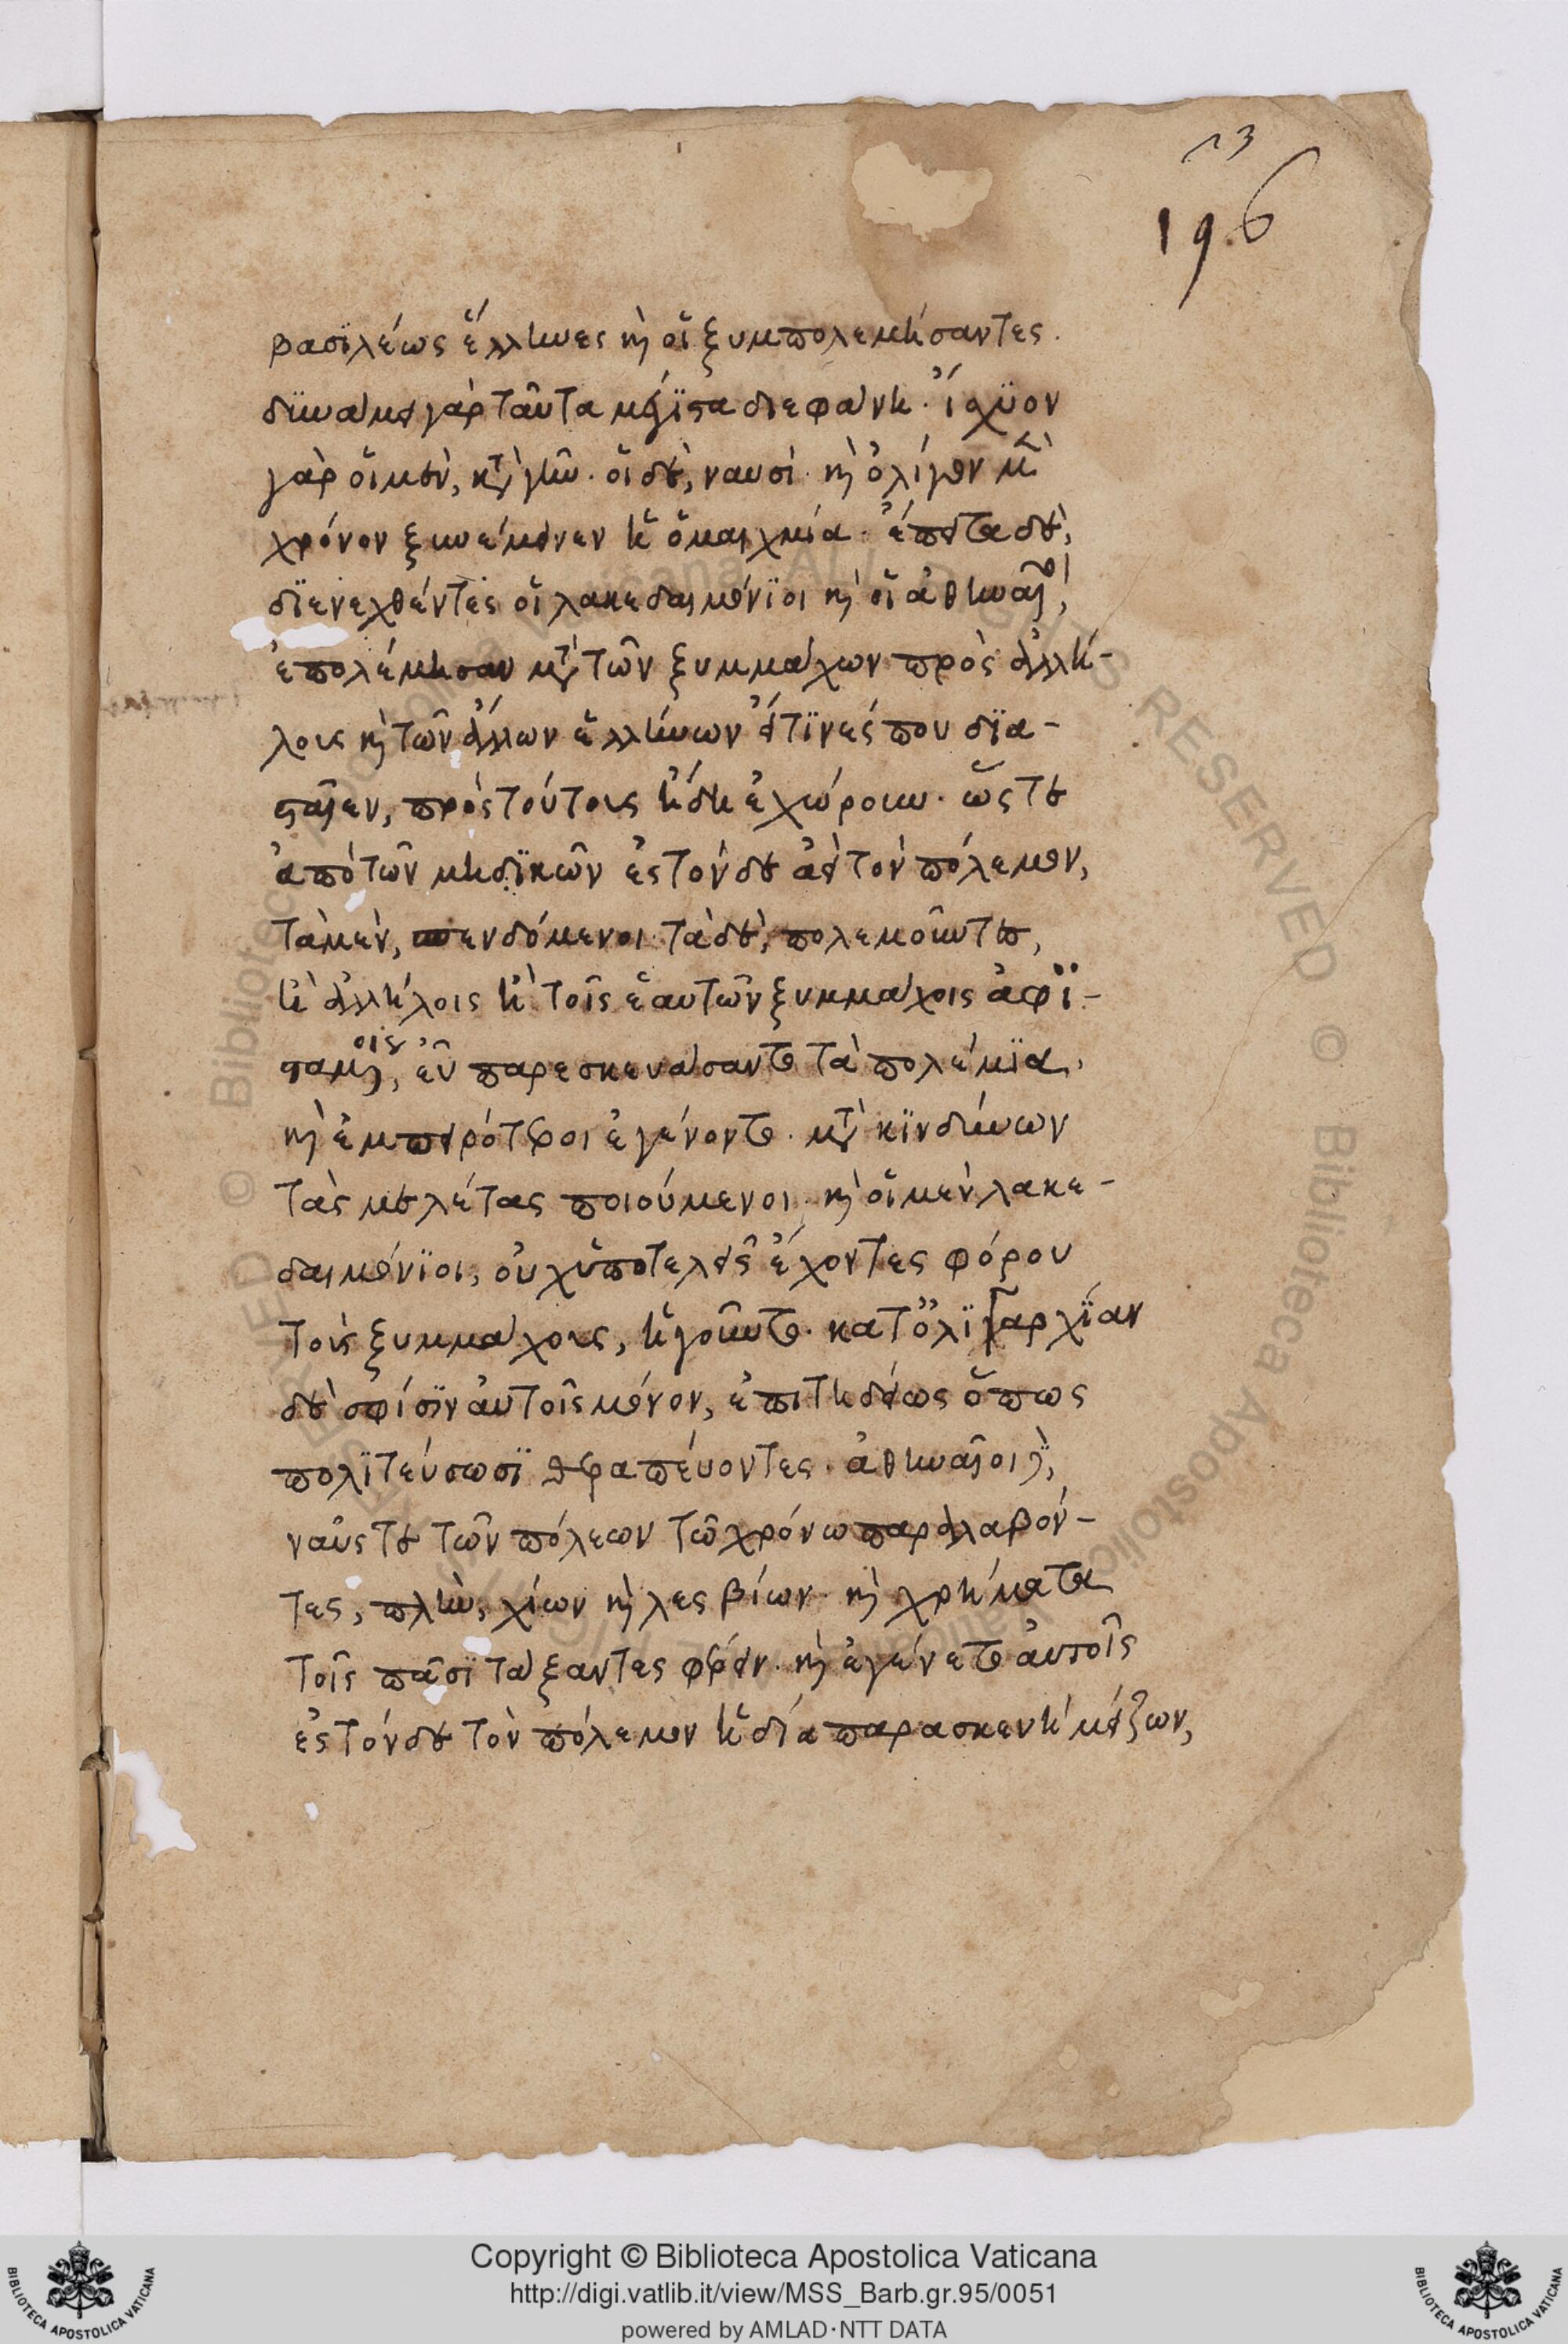 13
196
βασϊλέως ἕλληνες κὶ οἱ ξυμπολεμήσαντες.
δϊνάμει γὰρ ταῦτα μέγϊστα διεφάνη. ἴσχϋον
γὰρ οἱ μὲν, κατὰ γῆν. οἱ δὲ, ναυσὶ. κὶ ὀλίγον μὲν
χρόνον ξυνέμεινεν ἡ ὁμαιχμία. ἔπειτα δὲ,
δϊενεχθέντες οἱ λακεδαιμόνϊοι κὶ οἱ ἀθηναῖοι,
ἐπολέμησαν μετὰ τῶν ξυμμάχων πρὸς ἀλλή-
λους κὶ τῶν ἄλλων ἑλλήνων εἴ τϊνές που δϊα-
σταῖεν, πρὸς τούτους ἤδη ἐχώρουν. ὥς τε
ἀπὸ τῶν μηδϊκῶν ἐς τόνδε ἀεὶ τὸν πόλεμον,
τὰ μὲν, σπενδόμενοι τὰ δὲ, πολεμοῦντες,
ἢ ἀλλήλοις ἢ τοῖς ἑαυτῶν ξυμμάχοις ἀφϊ-
σταμένοις, εὖ παρεσκευάσαντο τὰ πολέμϊα.
κὶ ἐμπειρότεροι ἐγένοντο. μετὰ κϊνδύνων
τὰς μελέτας ποιούμενοι. κὶ οἱ μὲν λακε-
δαιμόνϊοι, οὐχ ὑποτελεῖς ἔχοντες φόρου
τοὺς ξυμμάχους, ἡγοῦντο. κατ ὀλϊγαρχΐαν
δὲ σφίσϊν αὐτοῖς μόνον, ἐπιτηδείως ὅπως
πολϊτεύσωσϊ θεραπεύοντες. ἀθηναῖοι δὲ,
ναῦς τε τῶν πόλεων τῶ χρόνω παραλαβόν-
τες, πλὴν, χίων κὶ λεσβίων. κὶ χρήματα
τοῖς πᾶσϊ τάξαντες φέρειν. κὶ ἐγένετο ἀυτοῖς
ἐς τόνδε τὸν πόλεμον ἡ δία παρασκευὴ μείζων,
Copyright © Biblioteca Apostolica Vaticana
http://digi.vatlib.it/view/MSS_Barb.gr.95/0051
powered by AMLAD·NTT DATA